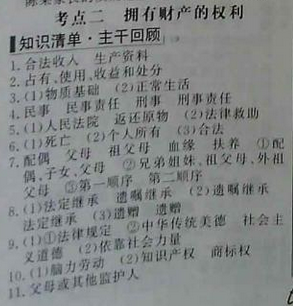 考点二 拥有财产的权利
知识清单·主干回顾
1.合法收入 生产资料
2.占有、使用、收益和处分
3.(1)物质基础 (2)正常生活
4.民事 民事责任 刑事 刑事责任
5.(1)人民法院 返还原物 (2)法律救助
6.(1)死亡 (2)个人所有 (3)合法
7.配偶 父母 祖父母 血缘 扶养 ①配
偶、子女、父母 ②兄弟姐妹、祖父母、外祖
父母 ③第一顺序 第二顺序
8.(1)法定继承 遗嘱继承 (2)遗嘱继承
法定继承 (3)遗赠 遗赠
9.(1)①法律规定 ②中华传统美德 社会主
义道德 (2)依靠社会力量
10.(1)脑力劳动 (2)知识产权 商标权
11.父母或其他监护人